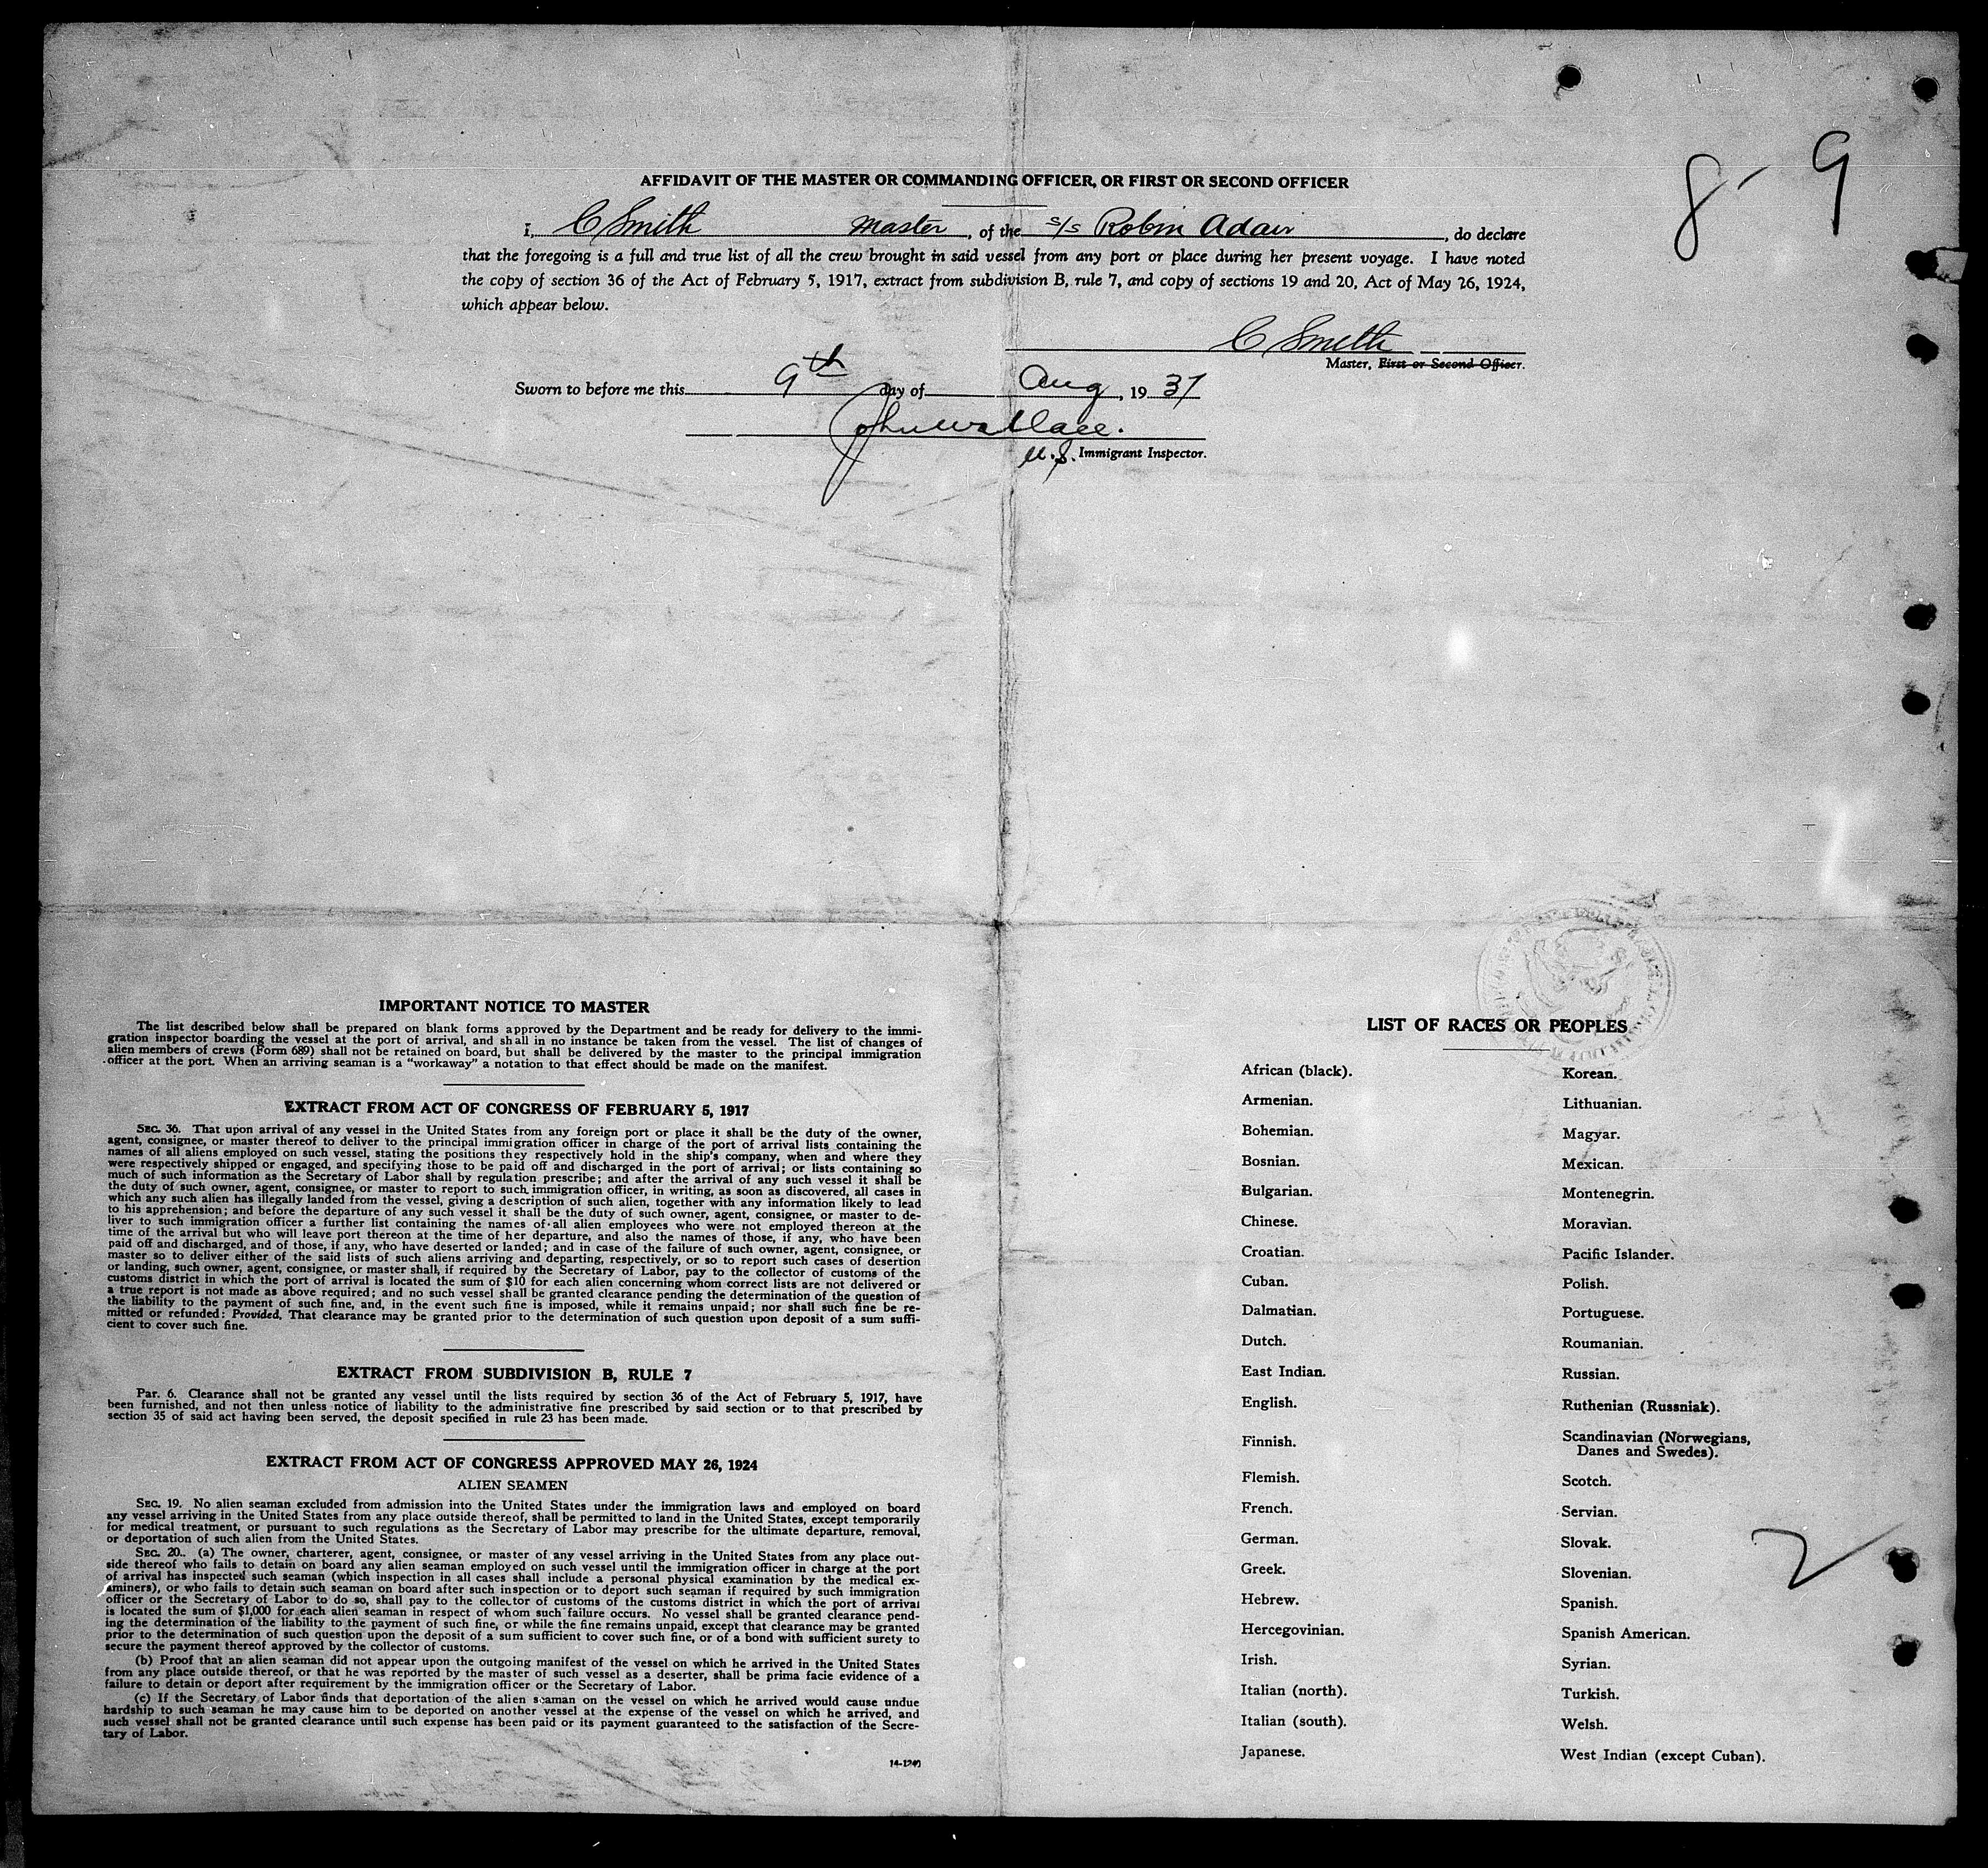 8 - 9
AFFIDAVIT OF THE MASTER OR COMMANDING OFFICER, OR FIRST OR SECOND OFFICER
I, C Smith master, of the s/s Robin Adair, do declare
that the foregoing is a full and true list of all the crew brought in said vessel from any port or place during her present voyage. I have noted
the copy of section 36 of the Act of February 5, 1917, extract from subdivision B, rule 7, and copy of sections 19 and 20, Act of May 26, 1924,
which appear below.
C Smith
Master, First or Second Officer.
Sworn to before me this 9th day of Aug, 1937
John Wallace.
U.S. Immigrant Inspector.
IMPORTANT NOTICE TO MASTER
The list described below shall be prepared on blank forms approved by the Department and be ready for delivery to the immi-
gration inspector boarding the vessel at the port of arrival, and shall in no instance be taken from the vessel. The list of changes of
alien members of crews (Form 689) shall not be retained on board, but shall be delivered by the master to the principal immigration
officer at the port. When an arriving seaman is a "workaway" a notation to that effect should be made on the manifest.
EXTRACT FROM ACT OF CONGRESS OF FEBRUARY 5, 1917
SEC. 36. That upon arrival of any vessel in the United States from any foreign port or place it shall be the duty of the owner,
agent, consignee, or master thereof to deliver to the principal immigration officer in charge of the port of arrival lists containing the
names of all aliens employed on such vessel, stating the positions they respectively hold in the ship's company, when and where they
were respectively shipped or engaged, and specifying those to be paid off and discharged in the port of arrival; or lists containing so
much of such information as the Secretary of Labor shall by regulation prescribe; and after the arrival of any such vessel it shall be
the duty of such owner, agent, consignee, or master to report to such immigration officer, in writing, as soon as discovered, all cases in
which any such alien has illegally landed from the vessel, giving a description of such alien, together with any information likely to lead
to his apprehension; and before the departure of any such vessel it shall be the duty of such owner, agent, consignee, or master to de-
liver to such immigration officer a further list containing the names of all alien employees who were not employed thereon at the
time of the arrival but who will leave port thereon at the time of her departure, and also the names of those, if any, who have been
paid off and discharged, and of those, if any, who have deserted or landed; and in case of the failure of such owner, agent, consignee, or
master so to deliver either of the said lists of such aliens arriving and departing, respectively, or so to report such cases of desertion
or landing, such owner, agent, consignee, or master shall, if required by the Secretary of Labor, pay to the collector of customs of the
customs district in which the port of arrival is located the sum of $10 for each alien concerning whom correct lists are not delivered or
a true report is not made as above required; and no such vessel shall be granted clearance pending the determination of the question of
the liability to the payment of such fine, and, in the event such fine is imposed, while it remains unpaid; nor shall such fine be re-
mitted or refunded: Provided, That clearance may be granted prior to the determination of such question upon deposit of a sum suffi-
cient to cover such fine.
EXTRACT FROM SUBDIVISION B, RULE 7
Par. 6. Clearance shall not be granted any vessel until the lists required by section 36 of the Act of February 5, 1917, have
been furnished, and not then unless notice of liability to the administrative fine prescribed by said section or to that prescribed by
section 35 of said act having been served, the deposit specified in rule 23 has been made.
EXTRACT FROM ACT OF CONGRESS APPROVED MAY 26, 1924
ALIEN SEAMEN
SEC. 19. No alien seaman excluded from admission into the United States under the immigration laws and employed on board
any vessel arriving in the United States from any place outside thereof, shall be permitted to land in the United States, except temporarily
for medical treatment, or pursuant to such regulations as the Secretary of Labor may prescribe for the ultimate departure, removal,
or deportation of such alien from the United States.
SEC. 20. (a) The owner, charterer, agent, consignee, or master of any vessel arriving in the United States from any place out-
side thereof who fails to detain on board any alien seaman employed on such vessel until the immigration officer in charge at the port
of arrival has inspected such seaman (which inspection in all cases shall include a personal physical examination by the medical ex-
aminers), or who fails to detain such seaman on board after such inspection or to deport such seaman if required by such immigration
officer or the Secretary of Labor to do so, shall pay to the collector of customs of the customs district in which the port of arrival
is located the sum of $1,000 for each alien seaman in respect of whom such failure occurs. No vessel shall be granted clearance pend-
ing the determination of the liability to the payment of such fine, or while the fine remains unpaid, except that clearance may be granted
prior to the determination of such question upon the deposit of a sum sufficient to cover such fine, or of a bond with sufficient surety to
secure the payment thereof approved by the collector of customs.
(b) Proof that an alien seaman did not appear upon the outgoing manifest of the vessel on which he arrived in the United States
from any place outside thereof, or that he was reported by the master of such vessel as a deserter, shall be prima facie evidence of a
failure to detain or deport after requirement by the immigration officer or the Secretary of Labor.
(c) If the Secretary of Labor finds that deportation of the alien seaman on the vessel on which he arrived would cause undue
hardship to such seaman he may cause him to be deported on another vessel at the expense of the vessel on which he arrived, and
such vessel shall not be granted clearance until such expense has been paid or its payment guaranteed to the satisfaction of the Secre-
tary of Labor.
14-1240
LIST OF RACES OR PEOPLES
African (black).
Armenian.
Bohemian.
Bosnian.
Bulgarian.
Chinese.
Croatian.
Cuban.
Dalmatian.
Dutch.
East Indian.
English.
Finnish.
Flemish.
French.
German.
Greek.
Hebrew.
Hercegovinian.
Irish.
Italian (north).
Italian (south).
Japanese.
Korean.
Lithuanian.
Magyar.
Mexican.
Montenegrin.
Moravian.
Pacific Islander.
Polish.
Portuguese.
Roumanian.
Russian.
Ruthenian (Russniak).
Scandinavian (Norwegians,
Danes and Swedes).
Scotch.
Servian.
Slovak.
Slovenian.
Spanish.
Spanish American.
Syrian.
Turkish.
Welsh.
West Indian (except Cuban).
2